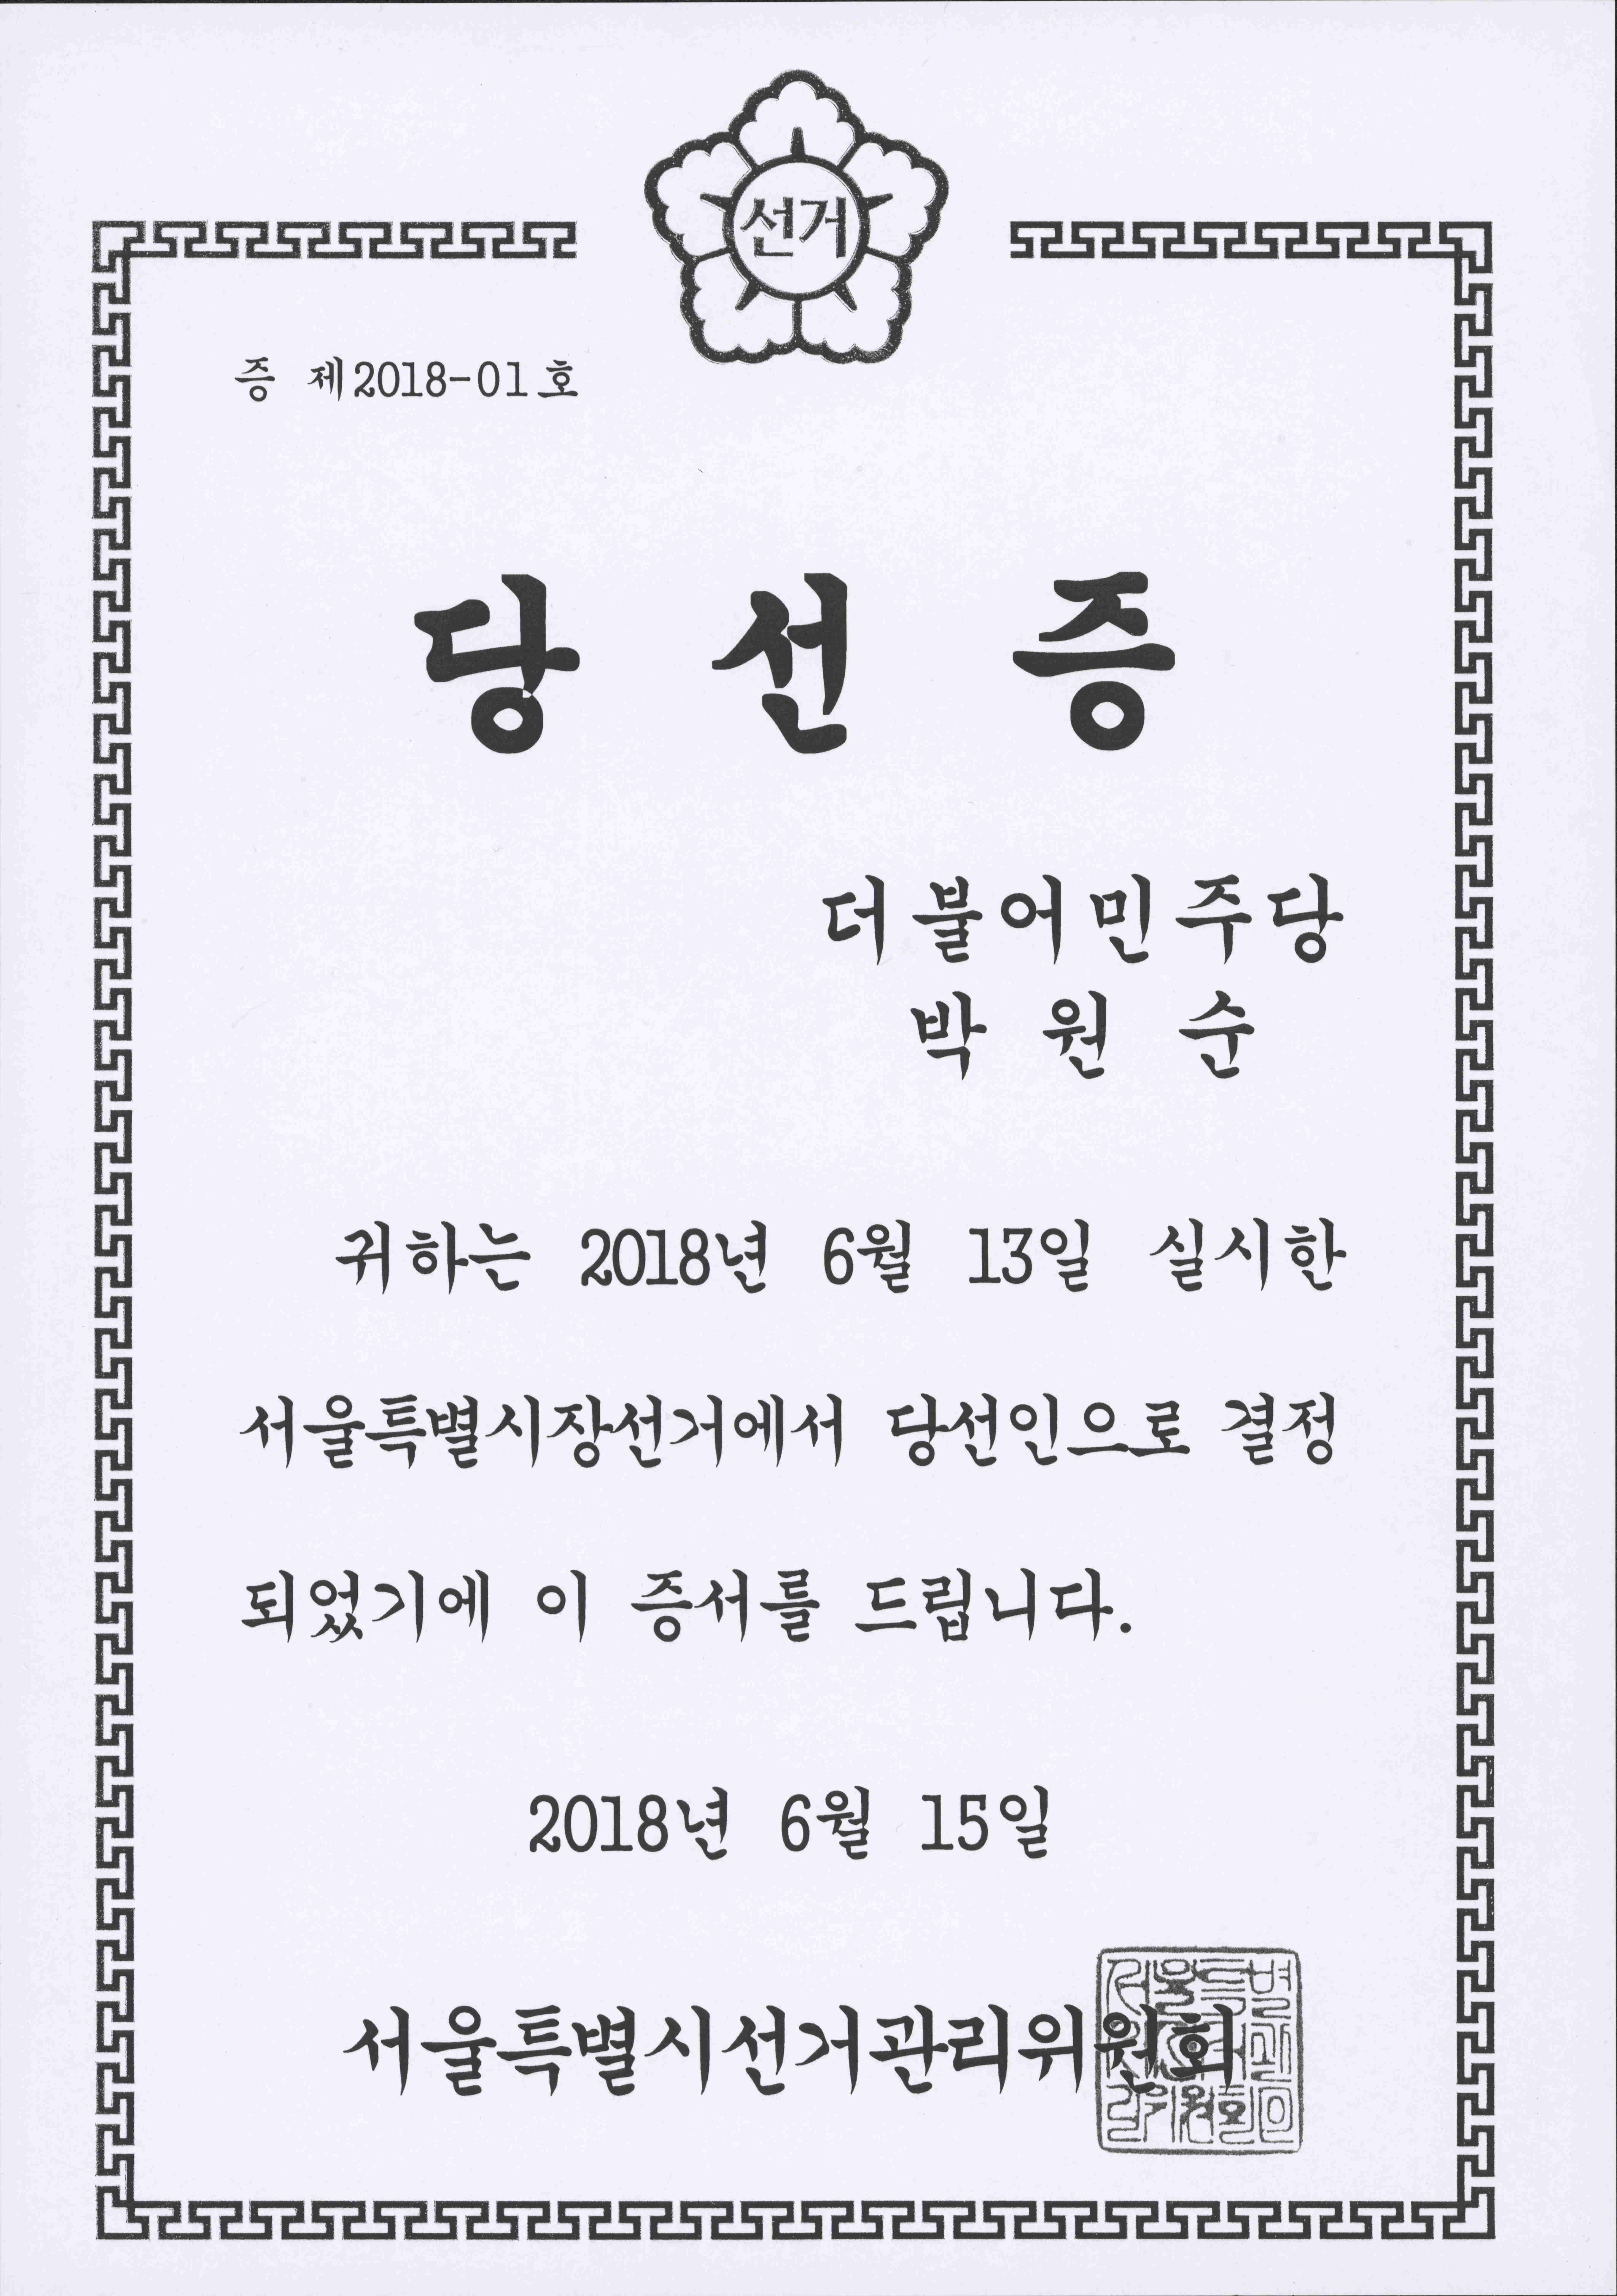 선거
증 제2018-01호
당 선 증
더불어민주당
박 원 순
귀하는 2018년 6월 13일 실시한
서울특별시장선거에서 당선인으로 결정
되었기에 이 증서를 드립니다.
2018년 6월 15일
서울특별시선거관리위원회